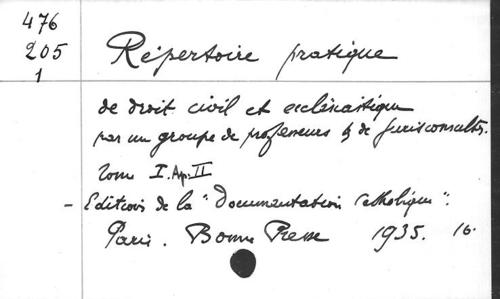 476
205
1
Répertoire pratique
de droit civil et ecclésiastique
par un groupe de professeurs & de Jurisconsultes.
Tome I. Ap. II
- Editions de la "Documentation Catholique".
Paris. Bonne Presse 1935. 16.